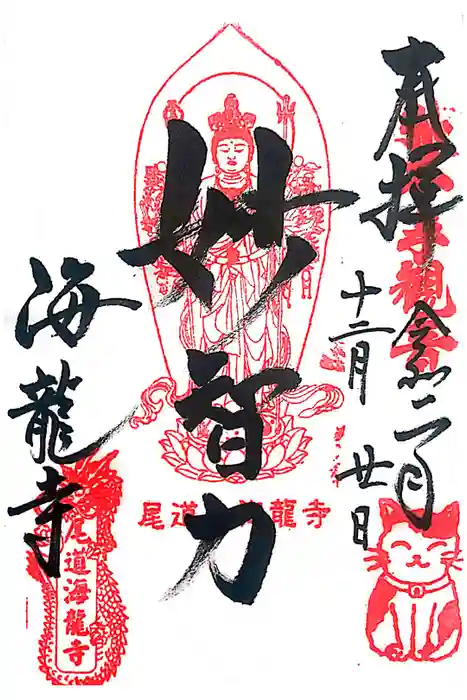 奉拝
令和二年
十二月
廿日
妙智力
尾道 海龍寺
海龍寺
尾道海龍寺